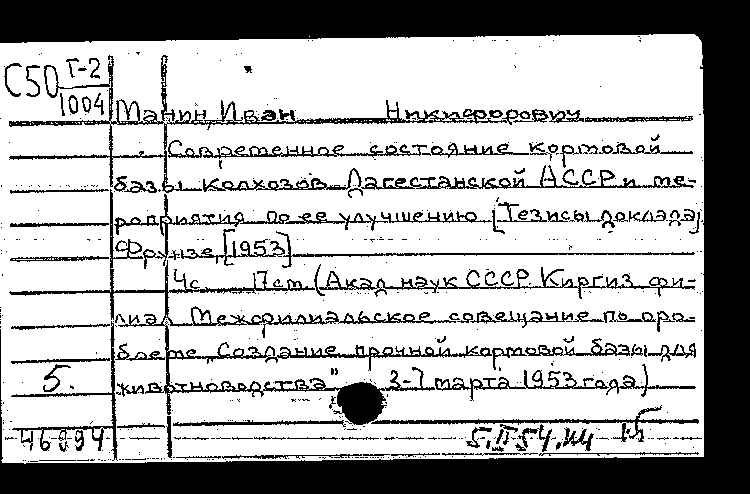 С50 Г-2
1004
Манин, Иван Никифорович
Современное состояние кормовой
базы колхозов Дагестанской АССР и ме-
роприятия по ее улучшению [Тезисы доклада]
Фрунзе, [1953]
4с. 17см (Акад наук СССР Киргиз фи-
лиал Межфилиальское совещание по про-
блеме „Создание прочной кормовой базы для
5. животноводства" 3-7 марта 1953 года)
46994 5.II 54.